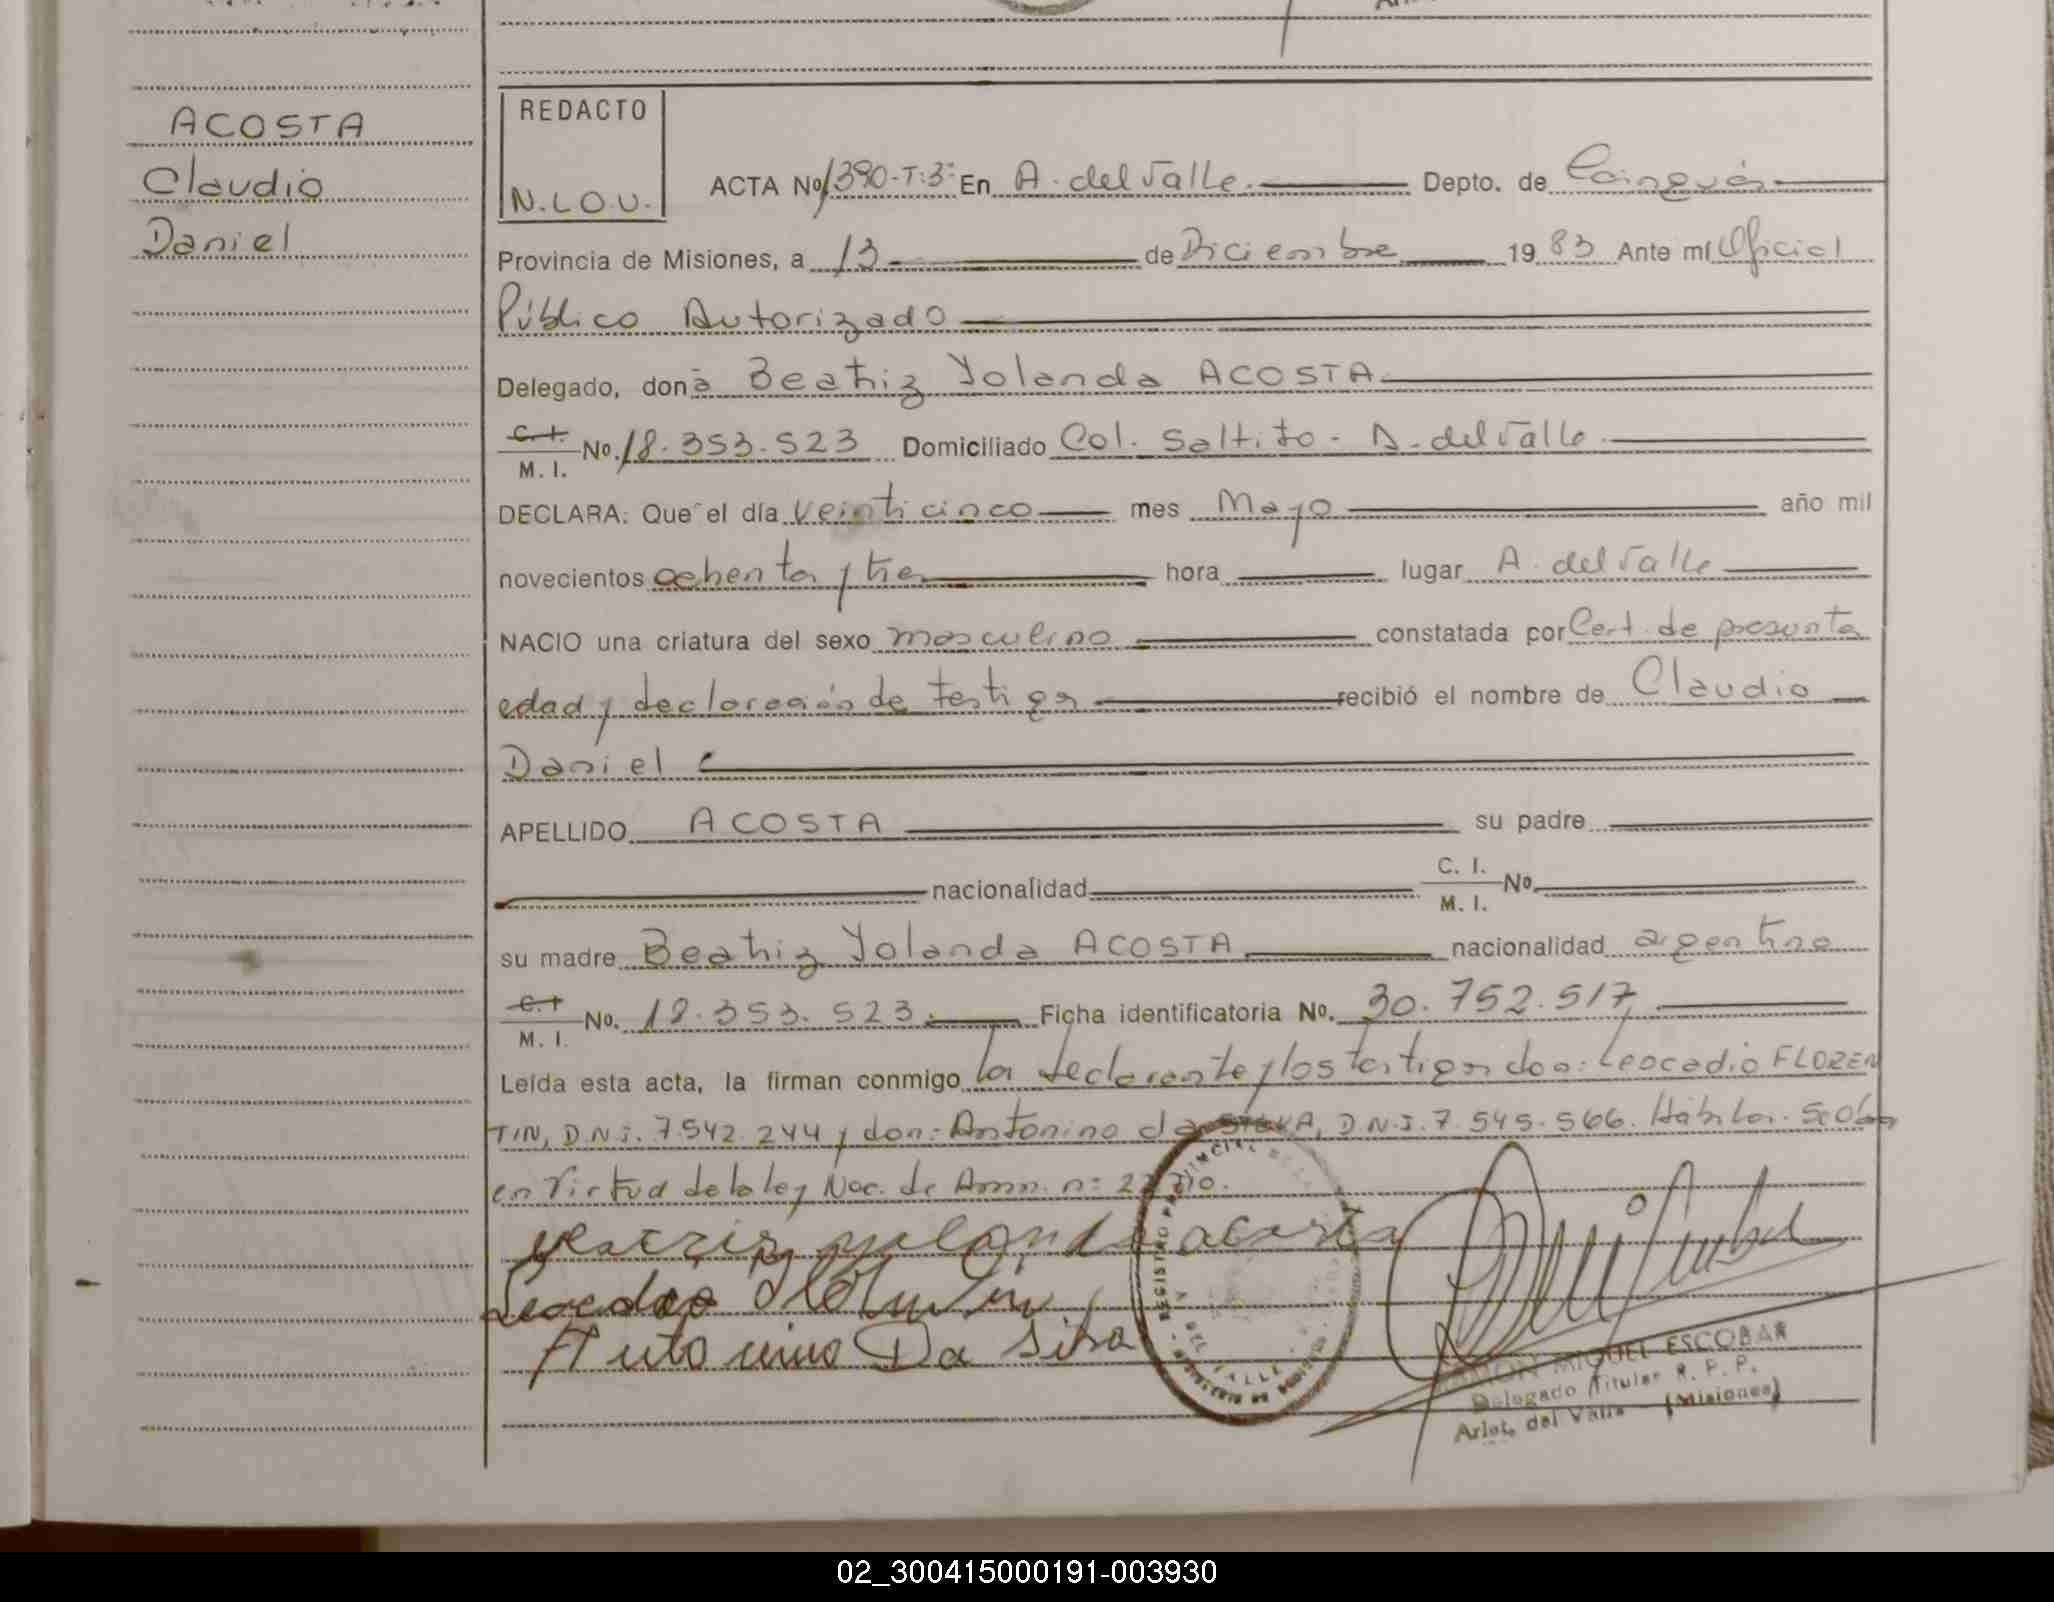 ACOSTA
Claudio
Daniel
REDACTO
N.L.O.U.
ACTA No 1390-T:3º En A. del Valle. Depto. de Cainguás
Provincia de Misiones, a 13 de Diciembre 1983 Ante mí Oficial
Público Autorizado
Delegado, doña Beatriz Yolanda ACOSTA
C. I.
M. I. No. 18.353.523 Domiciliado Col. Saltito - A. del Valle.
DECLARA: Que el día veinticinco mes Mayo año mil
novecientos ochenta y tres hora lugar A. del Valle
NACIO una criatura del sexo masculino constatada por Cert. de presunta
edad y declaración de testigos recibió el nombre de Claudio
Daniel
APELLIDO ACOSTA su padre
nacionalidad C. I.
M. I. No.
su madre Beatriz Yolanda ACOSTA nacionalidad argentina
C. I.
M. I. No. 18.353.523. Ficha identificatoria No. 30.752.517
Leída esta acta, la firman conmigo la declarante y los testigos don: Leocadio FLOREN
TIN, D.N.I. 7.542.244 y don: Antonino da SILVA, D.N.I. 7.545.566. Hábiles. S. Obra
en virtud de la ley Nac. de Amn. n: 22.710.
yeatriz yolanda acosta
Leocadio Florentin
Antonino Da Silva
MIGUEL ESCOBAR
Delegado Titular R. P. P.
Arist. del Valle (Misiones)
02_300415000191-003930